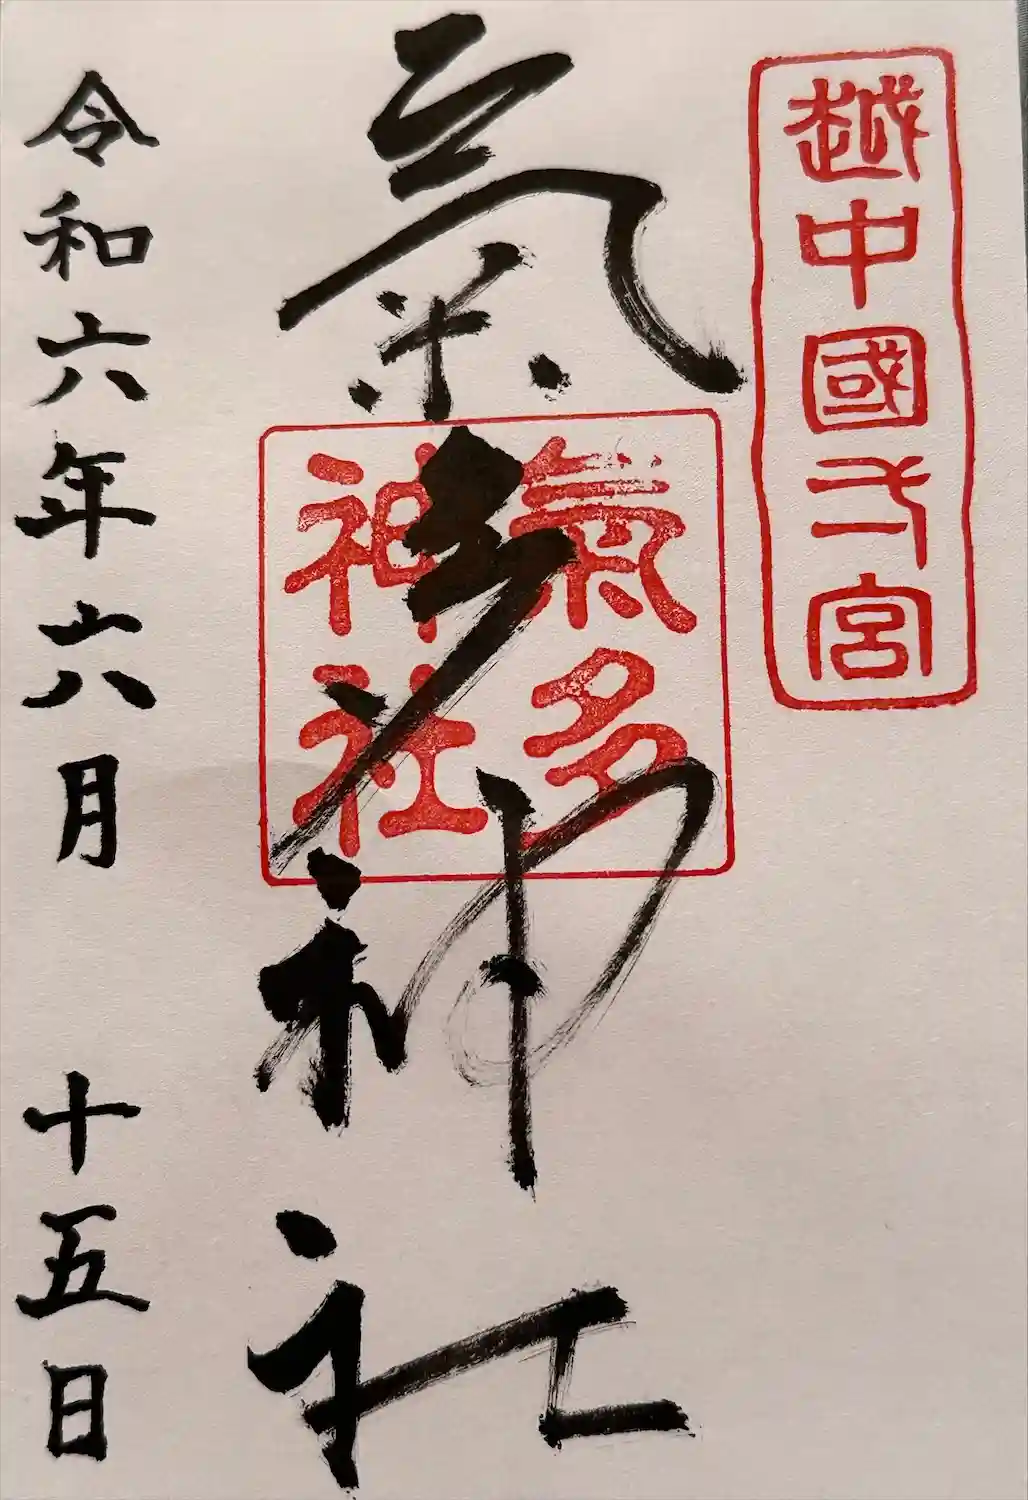 越中國一宮
氣多神社
氣多
神社
令和六年六月 十五日